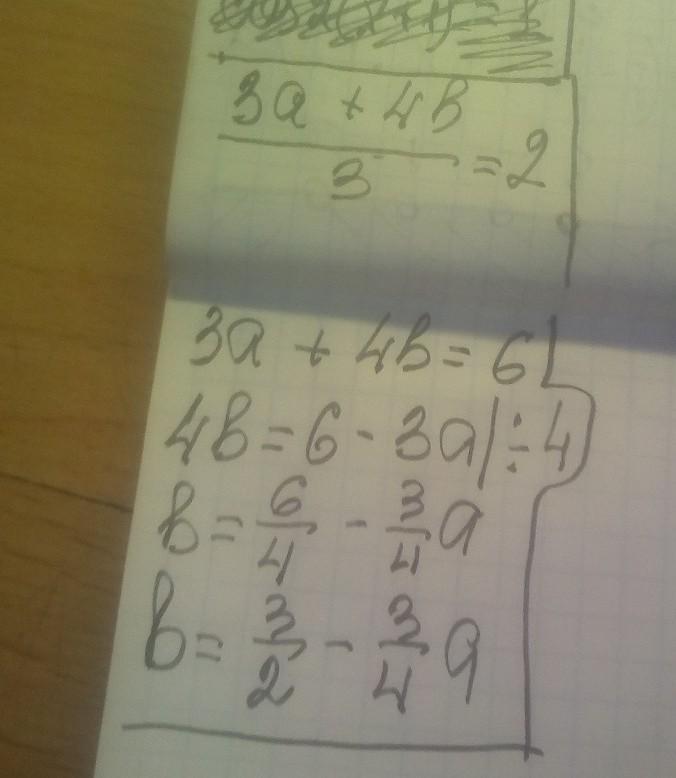 3a + 4b
3
= 2
3a + 4b = 6
4b = 6 - 3a | ÷ 4
b = 6/4 - 3/4 a
b = 3/2 - 3/4 a